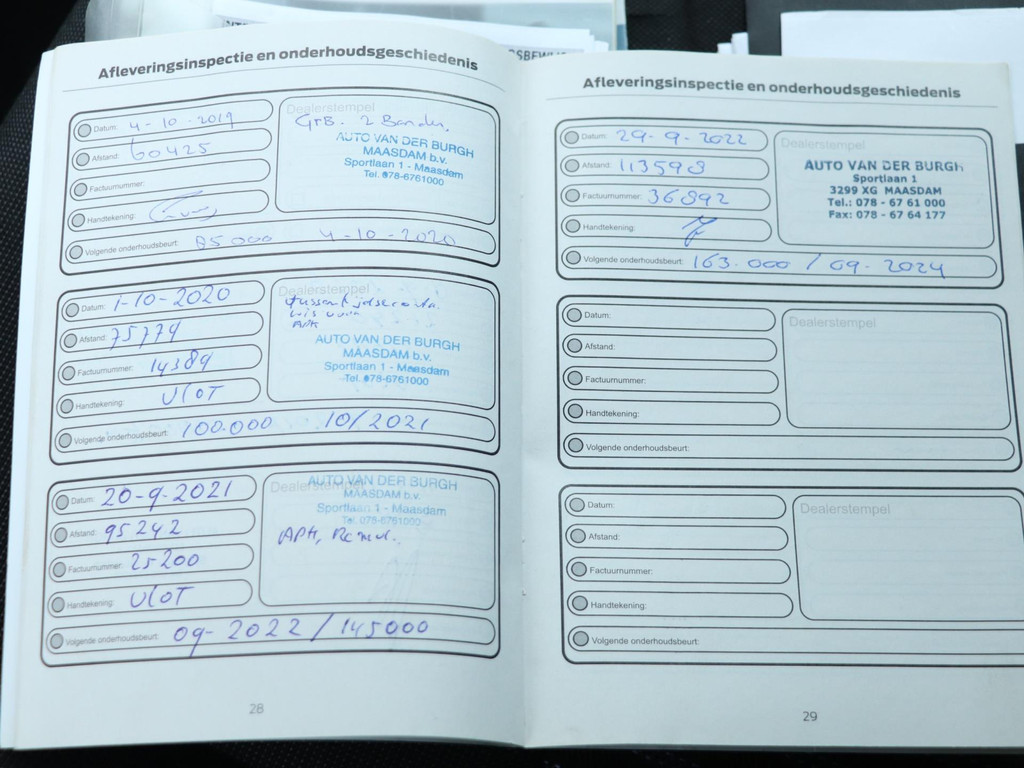 SBEWIJS
Afleveringsinspectie en onderhoudsgeschiedenis
Datum: 4-10-2019
Afstand: 60425
Factuurnummer:
Handtekening:
Volgende onderhoudsbeurt: 85000 4-10-2020
Dealerstempel
GrB. 2 Banden.
AUTO VAN DER BURGH
MAASDAM b.v.
Sportlaan 1 - Maasdam
Tel. 078-6761000
Datum: 1-10-2020
Afstand: 75774
Factuurnummer: 14389
Handtekening: VloT
Volgende onderhoudsbeurt: 100.000 10/2021
Dealerstempel
APK
AUTO VAN DER BURGH
MAASDAM b.v.
Sportlaan 1 - Maasdam
Tel. 078-6761000
Datum: 20-9-2021
Afstand: 95242
Factuurnummer: 25200
Handtekening: VloT
Volgende onderhoudsbeurt: 09-2022/145000
Dealerstempel
AUTO VAN DER BURGH
MAASDAM b.v.
Sportlaan 1 - Maasdam
Tel. 078-6761000
APK, Remvl.
28
Afleveringsinspectie en onderhoudsgeschiedenis
Datum: 29-9-2022
Afstand: 113593
Factuurnummer: 36892
Handtekening:
Volgende onderhoudsbeurt: 163.000 / 09-2024
Dealerstempel
AUTO VAN DER BURGH
Sportlaan 1
3299 XG MAASDAM
Tel.: 078 - 67 61 000
Fax: 078 - 67 64 177
Datum:
Afstand:
Factuurnummer:
Handtekening:
Volgende onderhoudsbeurt:
Dealerstempel
Datum:
Afstand:
Factuurnummer:
Handtekening:
Volgende onderhoudsbeurt:
Dealerstempel
29